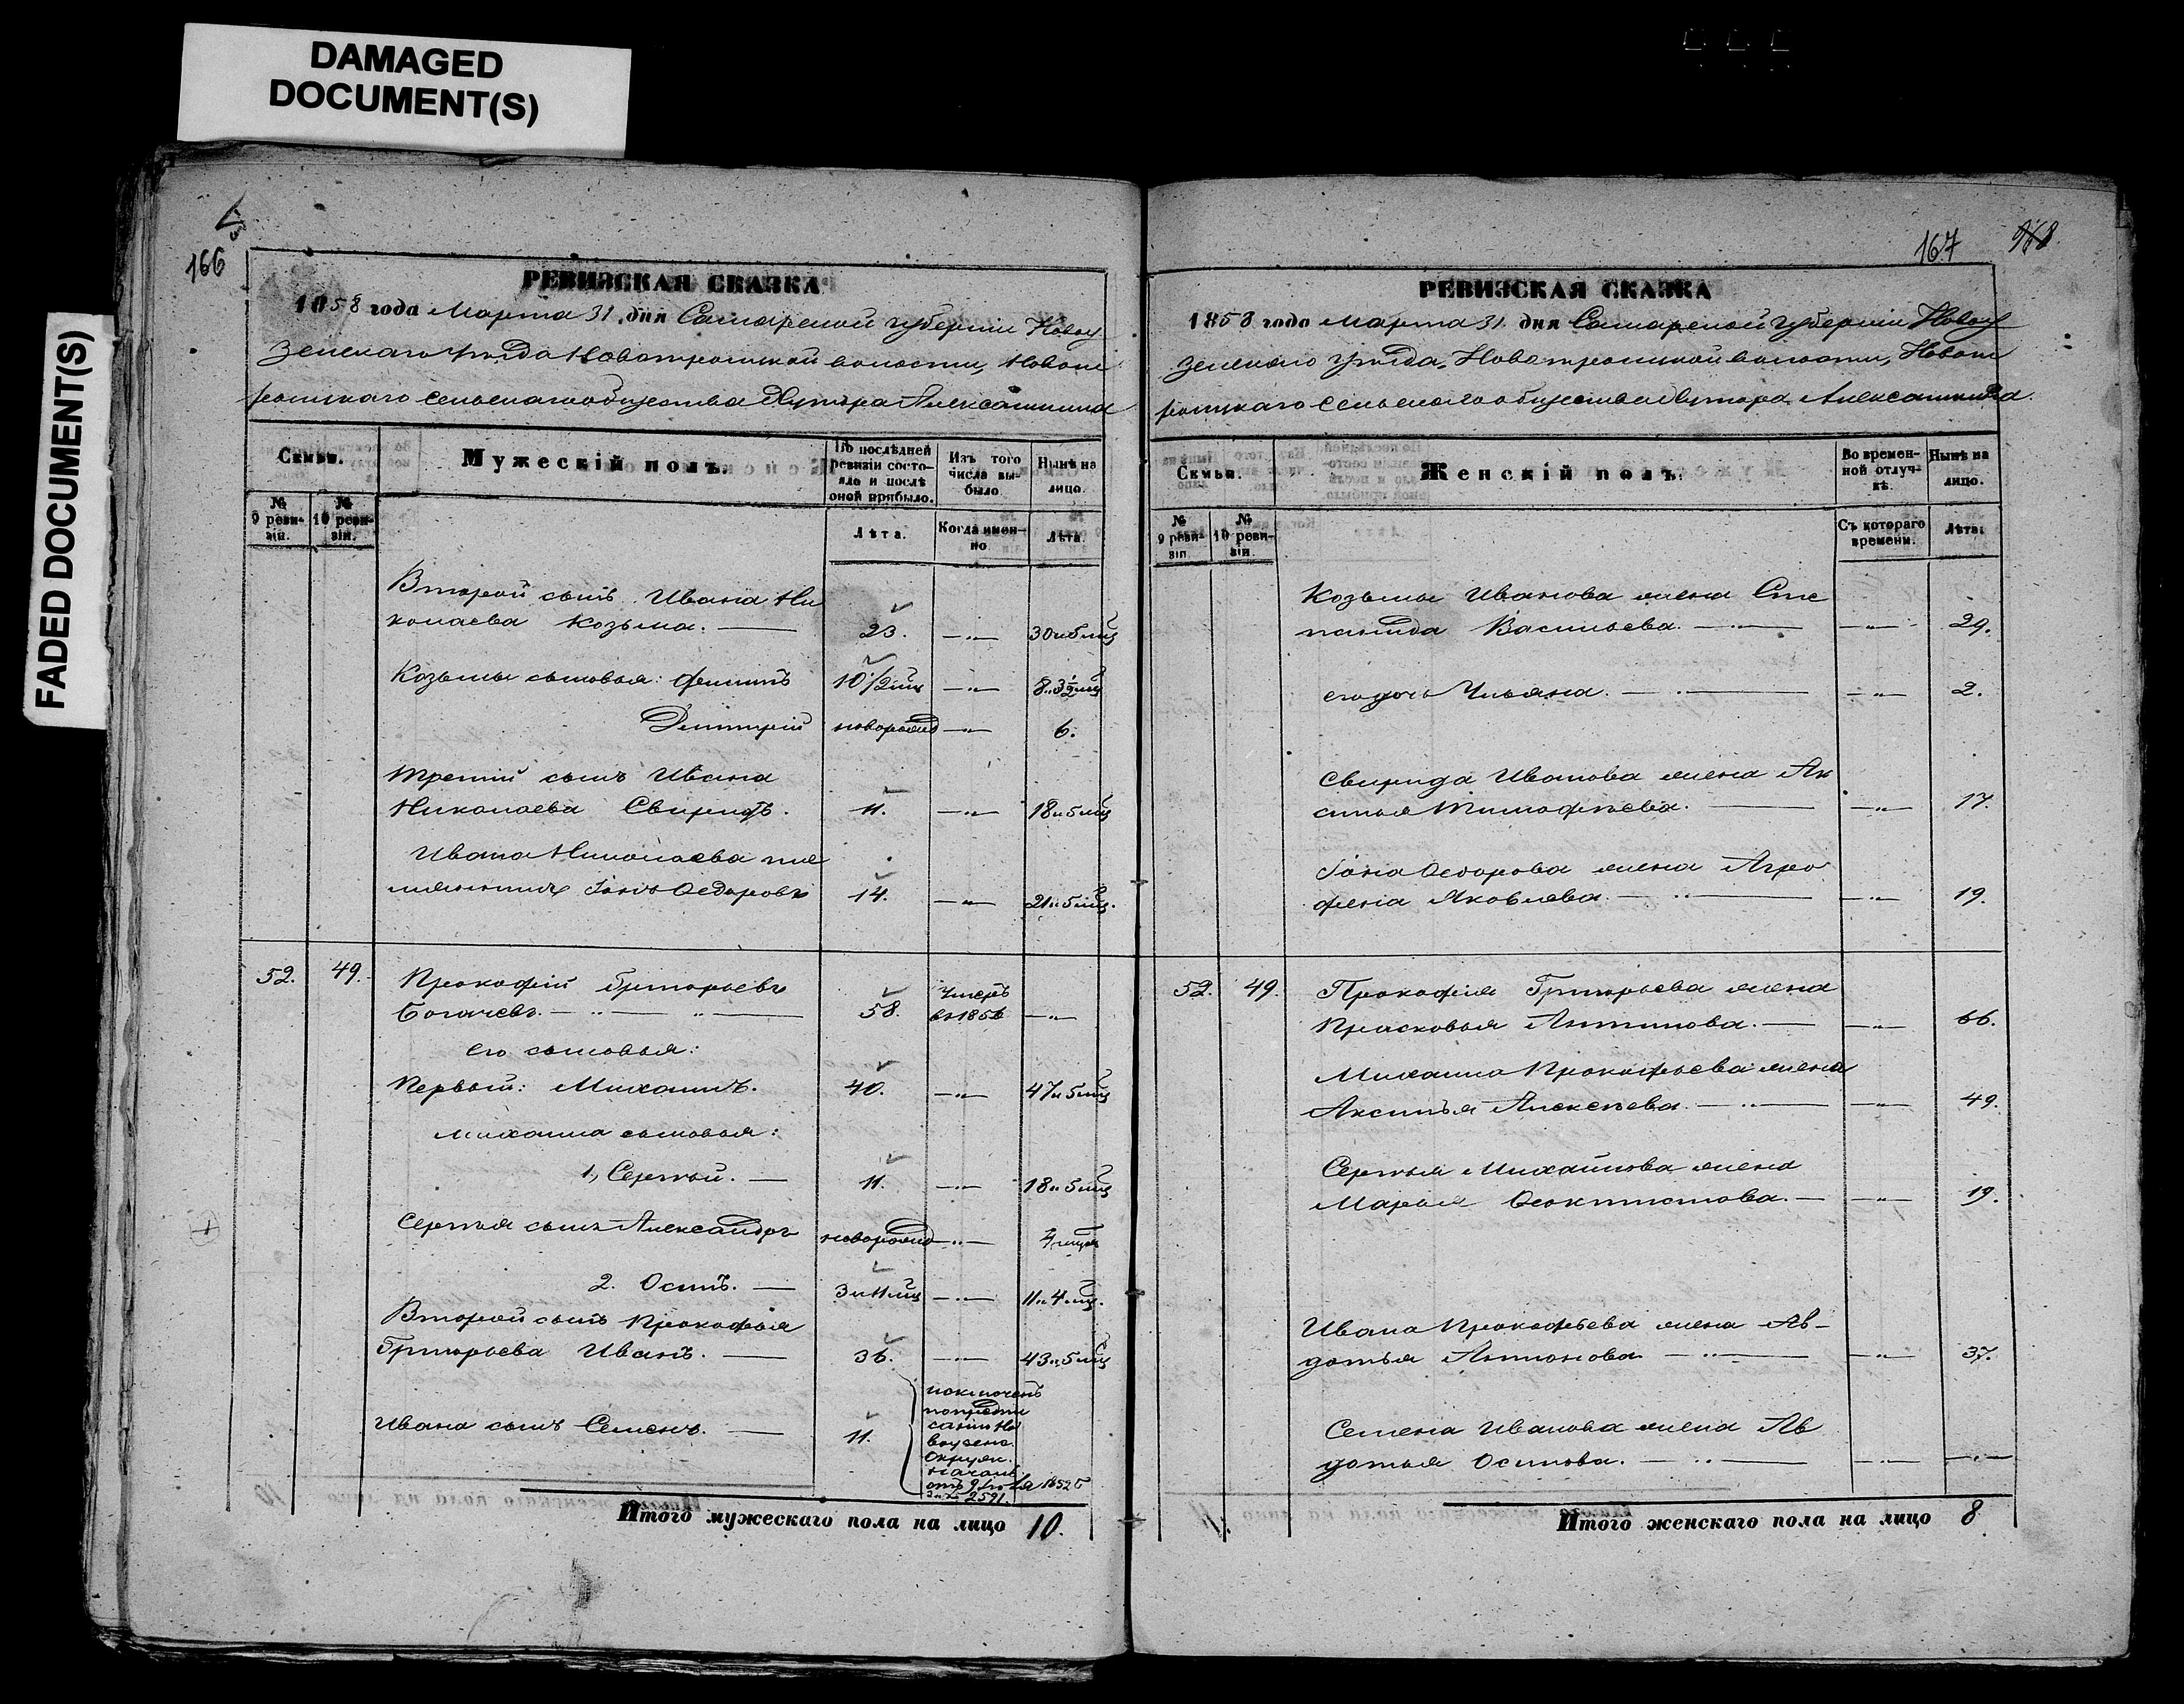 DAMAGED
DOCUMENT(S)
FADED DOCUMENT(S)
166
РЕВИЗСКАЯ СКАЗКА
1858 года Марта 31 дня Самарской губернiи Новоу
зенскаго уѣзда Новотроицкой волости, Новот
роицкаго сельскаго общества хутора Алексашкина
Семьи.
Мужескiй полъ.
По послѣдней
ревизiи состо-
яло и послѣ
оной прибыло.
Изъ того
числа вы-
было.
Нынѣ на
лицо.
№
9 реви-
зiи.
№
10 реви-
зiи.
Лѣта.
Когда имен-
но
Лѣта.
Второй сынъ Ивана Ни
колаева Козьма. 23. 30 и 5 мц
Козьмы сыновья: Филипъ 10 1/2 мц 8 и 3 1/2 мц
Дмитрiй новорожд 6.
Третiй сынъ Ивана
Николаева Свиридъ. 11. 18 и 5 мц
Ивана Николаева пле
мянникъ Iона Ѳедоровъ 14. 21 и 5 мц.
52. 49. Прокофiй Григорьевъ
Богачевъ. 58. умеръ въ 1856
его сыновья:
Первый: Михаилъ. 40. 47 и 5 мц
Михаила сыновья:
1, Сергѣй. 11. 18 и 5 мц
Сергѣя сынъ Александръ новорожд 4 мцa
2. Осипъ. 3 и 11 мц 11 и 4 мц.
Второй сынъ Прокофья
Григорьева Иванъ. 36. 43 и 5 мц
Ивана сынъ Семенъ. 11.
исключенъ
по предпи
санiю Но
воузенс.
Окружн.
Начал
отъ 9 1852 г
за № 2591
Итого мужескаго пола на лицо 10.
167
РЕВИЗСКАЯ СКАЗКА
1858 года Марта 31 дня Самарской губернiи Новоу
зенскаго уѣзда, Новотроицкой волости, Новот
роицкаго сельскаго общества хутора Алексашкина.
Семьи.
Женскiй полъ.
Во времен-
ной отлуч-
кѣ.
Нынѣ на
лицо.
№
9 реви-
зiи
№
10 реви-
зiи.
Съ котораго
времени.
Лѣта.
Козьмы Иванова жена Сте
панида Васильева. 29.
его дочь Ульяна. 2.
Свирида Иванова жена Ак
синья Тимофѣева. 17.
Iона Ѳедорова жена Агро
фена Яковлева. 19.
52. 49. Прокофья Григорьева жена
Прасковья Антипова. 66.
Михаила Прокофьева жена
Аксинья Алексѣева. 49.
Сергѣя Михайлова жена
Марья Ѳеоктистова. 19.
Ивана Прокофьева жена Ав-
дотья Антонова 37.
Семена Иванова жена Ав
дотья Осипова.
Итого женскаго пола на лицо 8